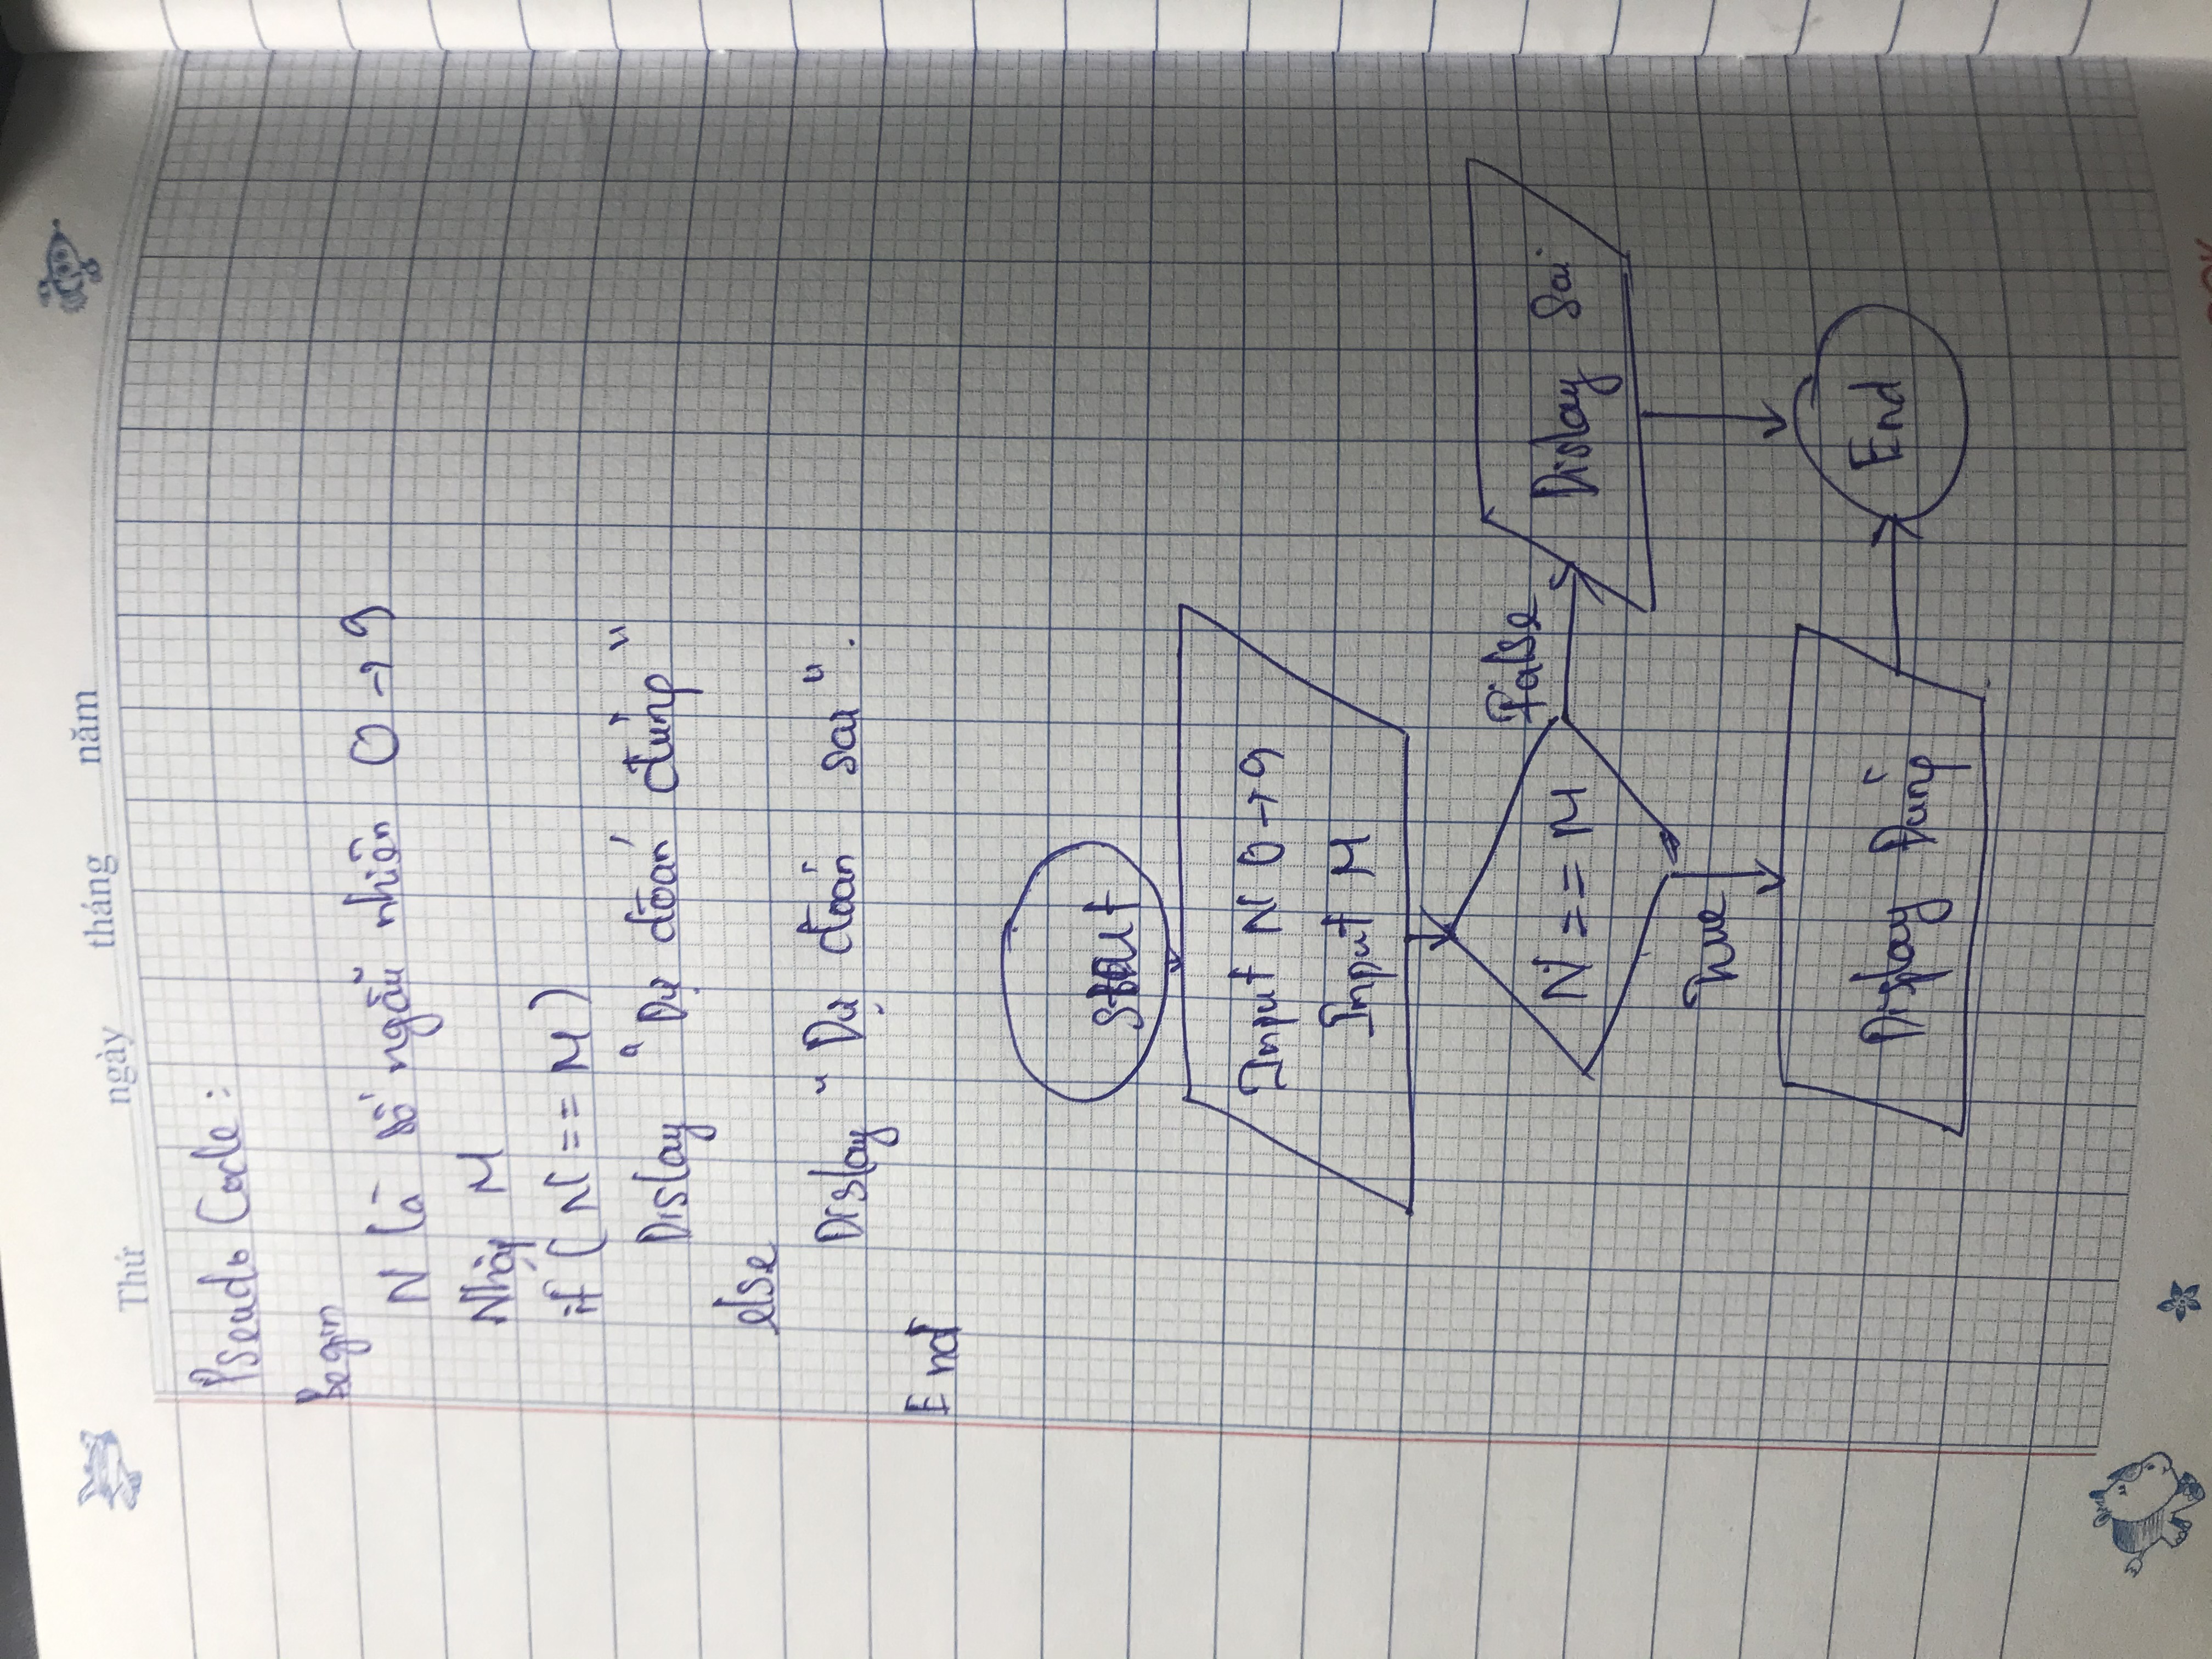 Thứ ngày tháng năm
Pseudo Code:
Begin
N là số ngẫu nhiên 0 → 9
Nhập M
if (N == M)
Dislay "Dự đoán đúng"
else
Dislay "Dự đoán sai".
End
Start
Input N 0 → 9
Input M
N == M
False
Dislay Sai
True
Display Đúng
End